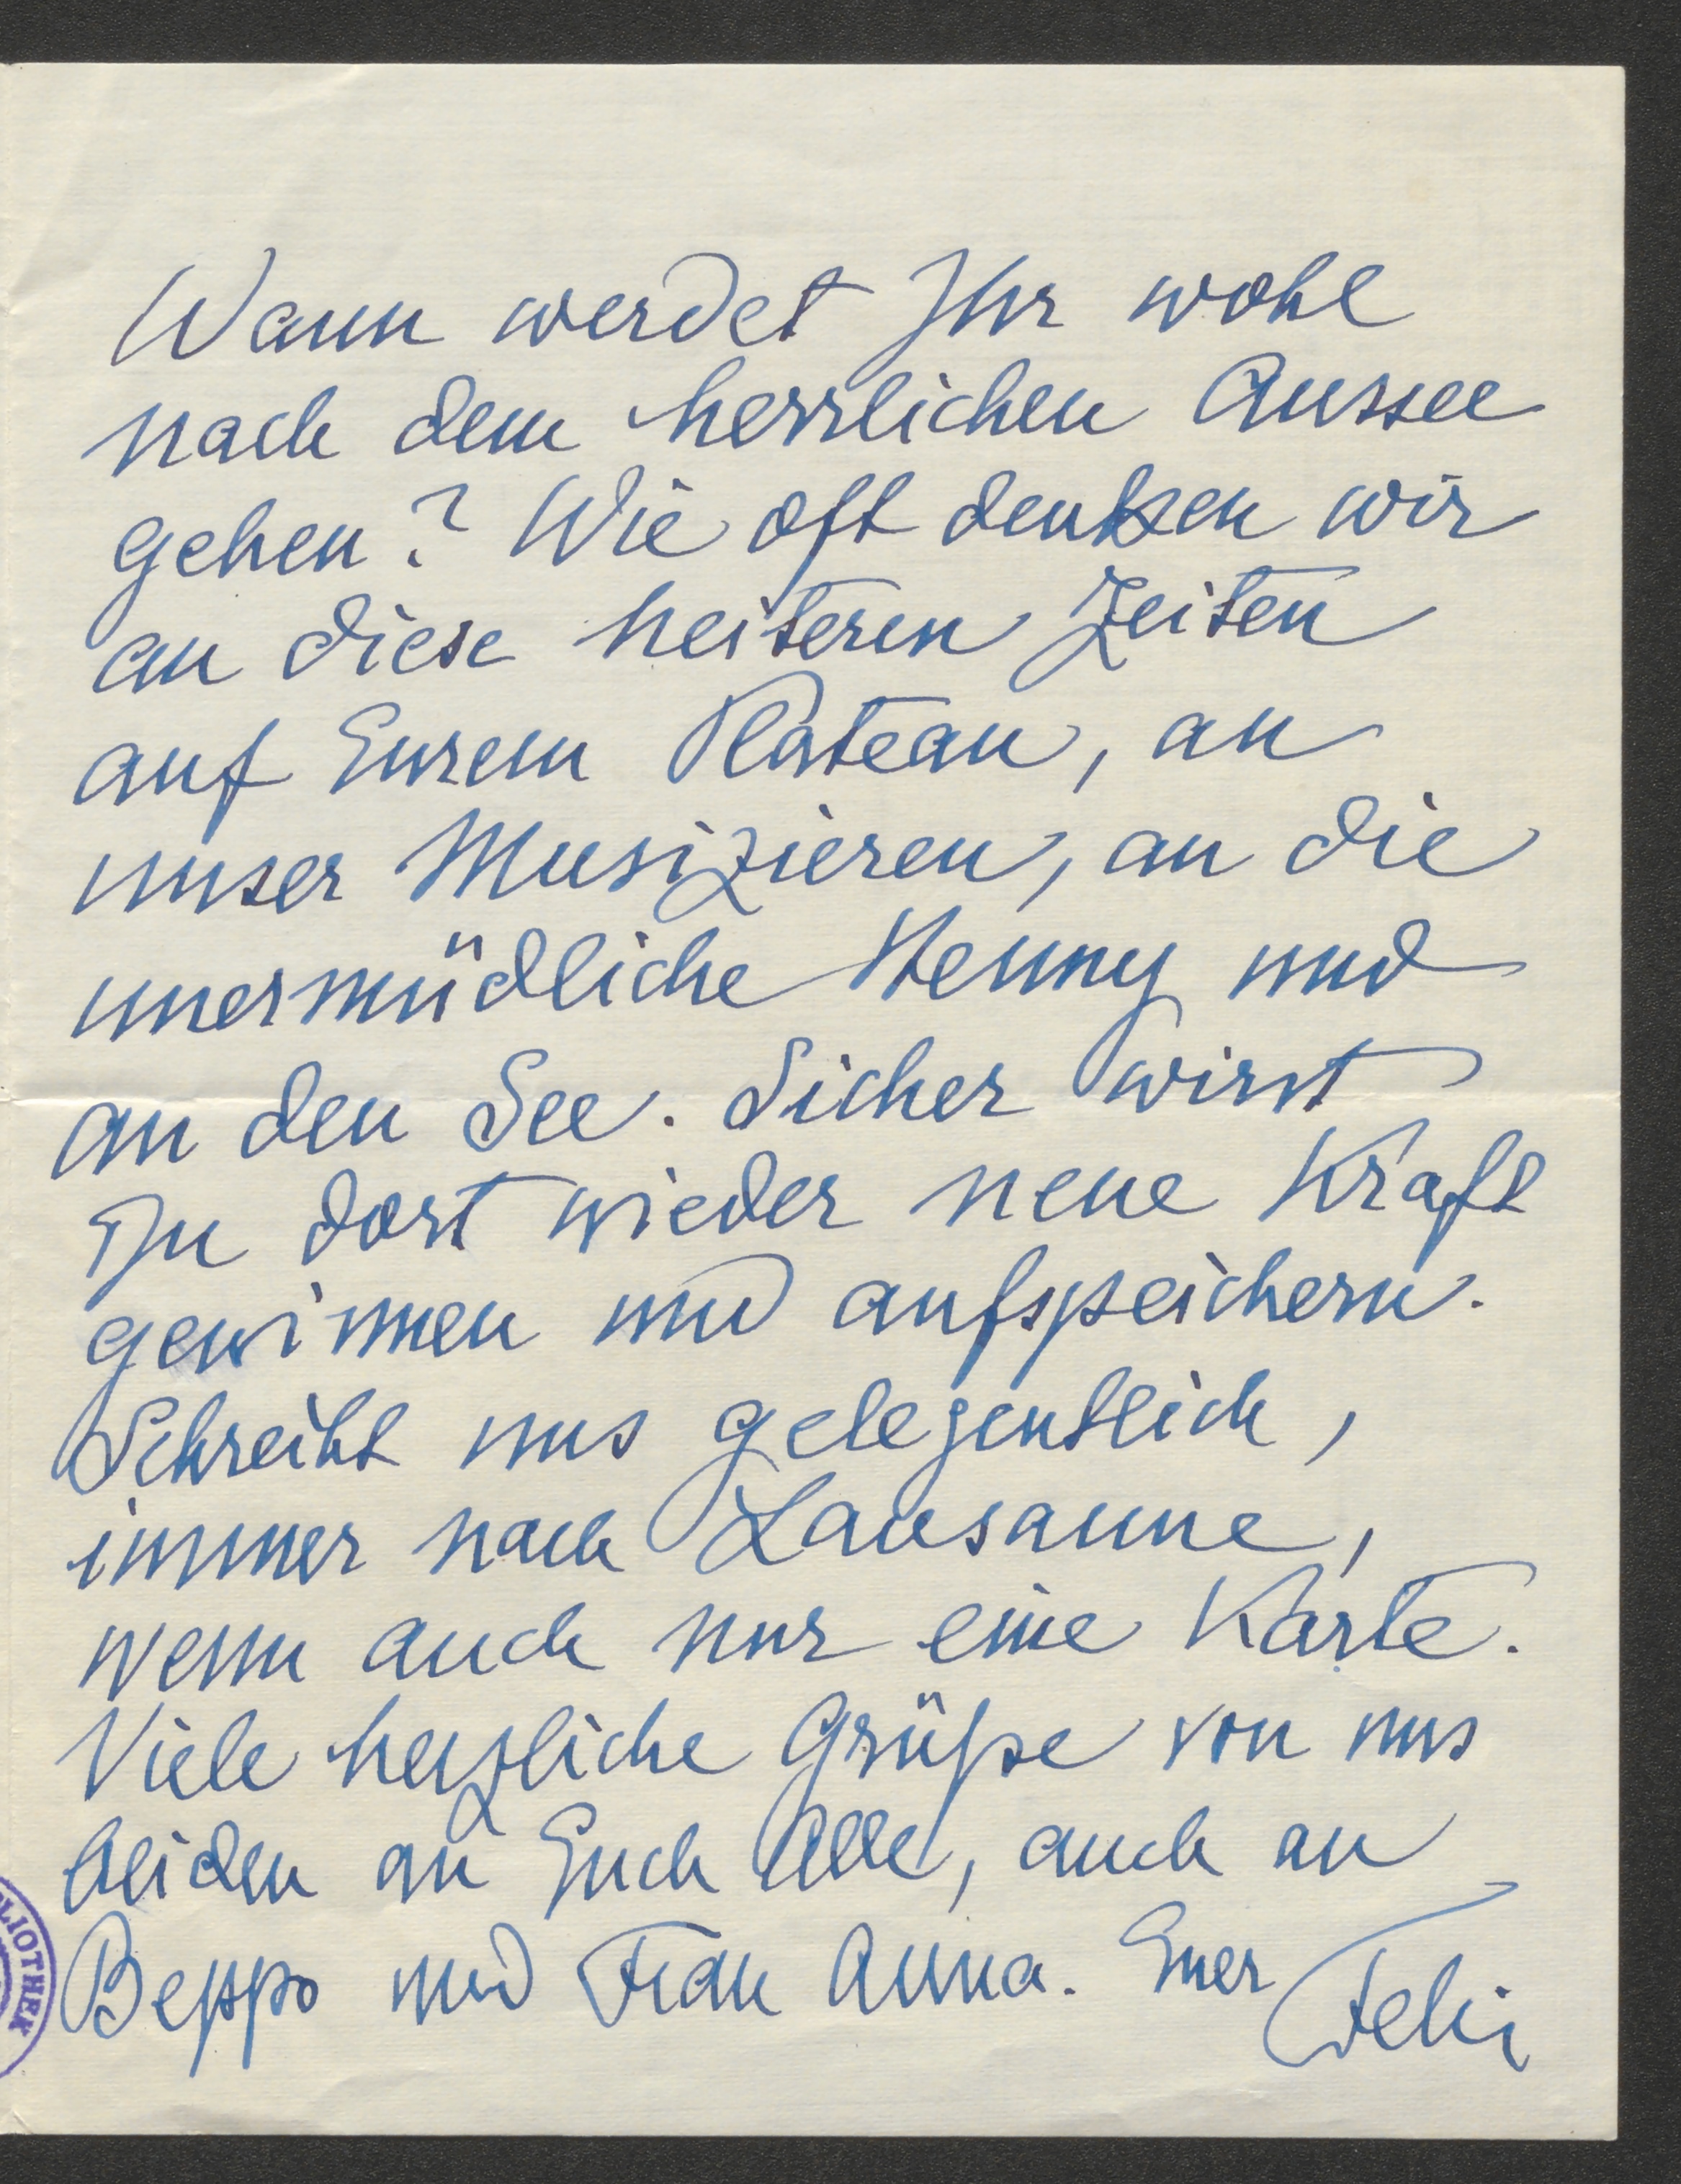 Wann werdet Ihr wohl
nach dem herrlichen Aussee
gehen? Wie oft denken wir
an diese heiteren Zeiten
auf Eurem Plateau, an
unser Musizieren, an die
unermüdliche Henny und
an den See. Sicher wirst
Du dort wieder neue Kraft
gewinnen und aufspeichern.
Schreibt uns gelegentlich,
immer nach Lausanne,
wenn auch nur eine Karte.
Viele herzliche Grüße von uns
beiden an Euch Alle, auch an
Beppo und Frau Anna. Euer
Felix
LIOTHEK